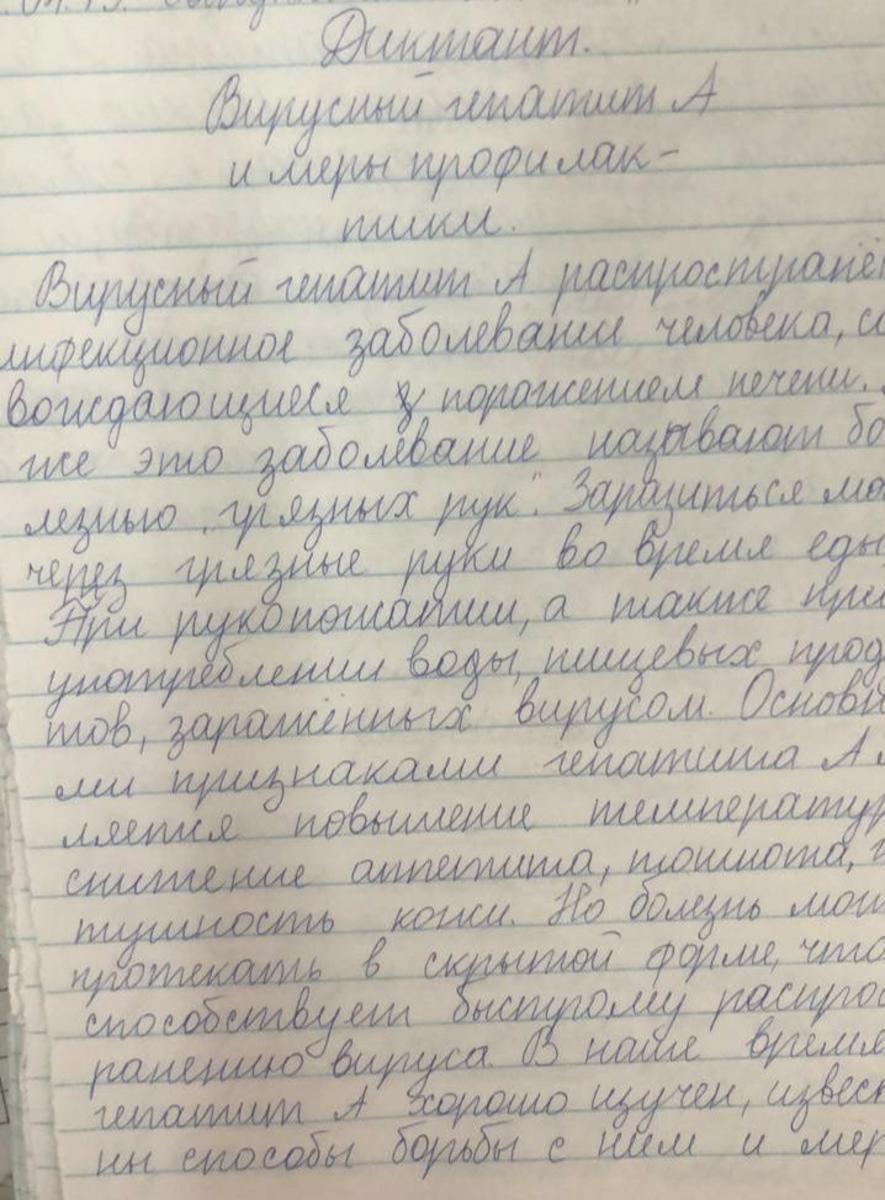 Диктант.
Вирусный гепатит А
и меры профилак-
тики.
Вирусный гепатит А распространён
инфекционное заболевание человека, со
вождающиеся поражением печени.
же это заболевание называют бо
лезнью „грязных рук". Заразиться мо
через грязные руки во время еды
При рукопожатии, а также при
употреблении воды, пищевых прод
тов, заражённых вирусом. Основн
ми признаками гепатита А
ляется повышение температур
снижение аппетита, тошнота,
тушность кожи. Но болезнь мож
протекать в скрытой форме, что
способствует быстрому распрос
ранению вируса. В наше время
гепатит А хорошо изучен, извес
ны способы борьбы с ним и мер